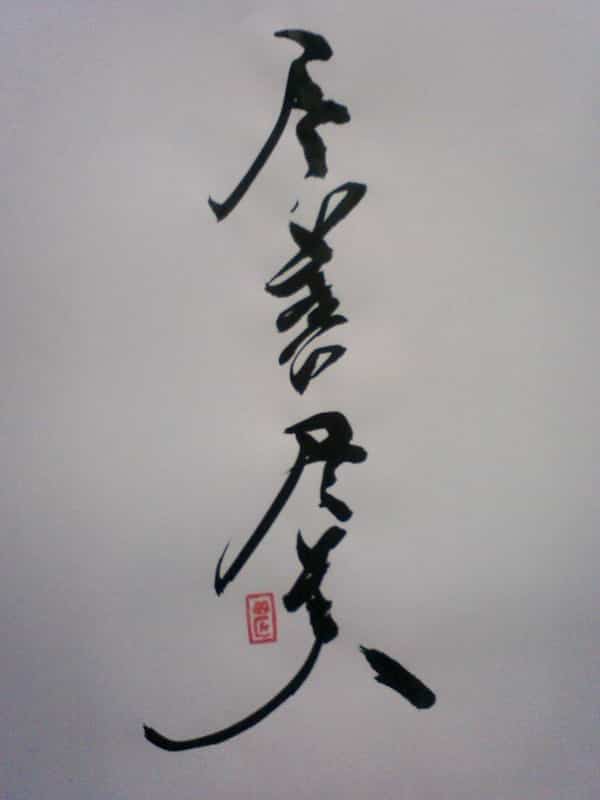 尽善尽美